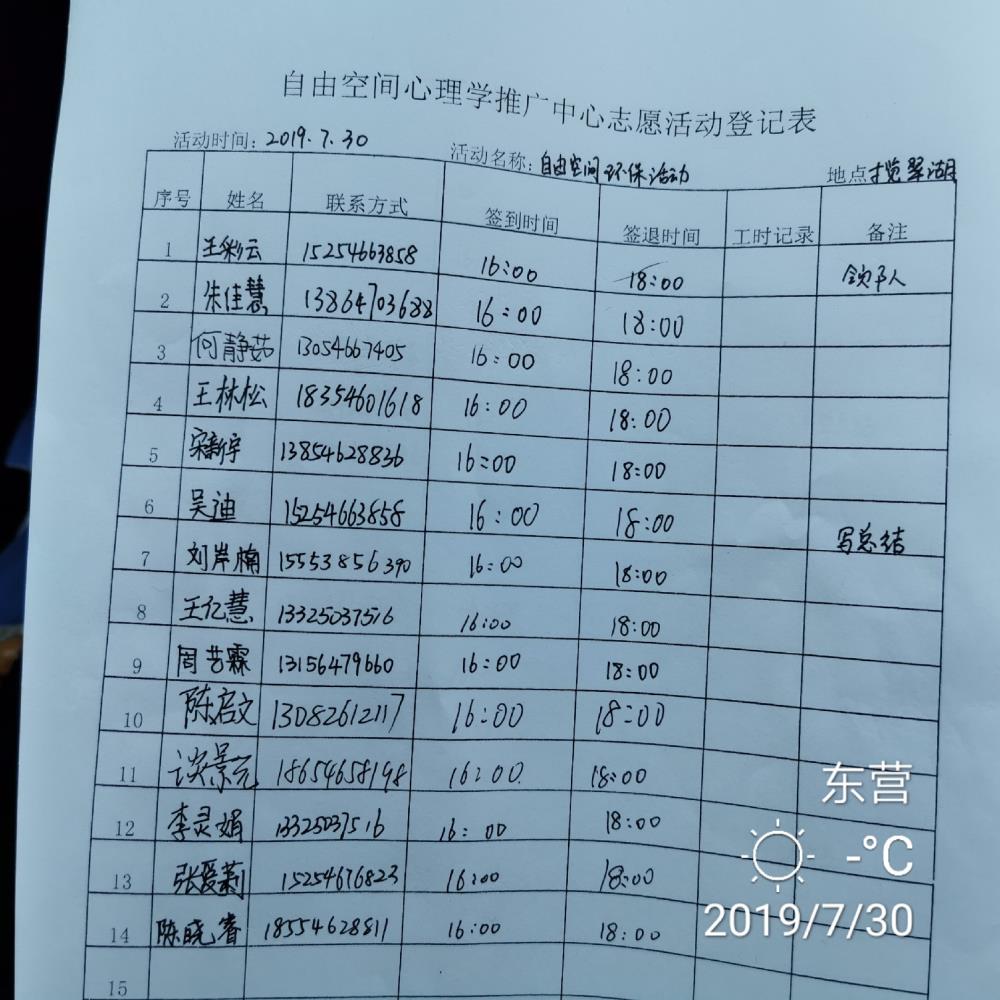 自由空间心理学推广中心志愿活动登记表
活动时间：2019.7.30 活动名称：自由空间环保活动 地点揽翠湖
序号 姓名 联系方式 签到时间 签退时间 工时记录 备注
1 王彩云 15254663858 16:00 18:00 领队人
2 朱佳慧 13864703688 16:00 18:00
3 何静茹 13054667405 16:00 18:00
4 王林松 18354601618 16:00 18:00
5 宋新宇 13854628836 16:00 18:00
6 吴迪 15254663858 16:00 18:00 写总结
7 刘岸楠 15553856390 16:00 18:00
8 王亿慧 13325037516 16:00 18:00
9 周艺霖 13156479660 16:00 18:00
10 陈启文 13082612117 16:00 18:00
11 谈景元 18654658198 16:00 18:00
12 李灵娟 13325037516 16:00 18:00
13 张爱莉 15254676823 16:00 18:00
14 陈晓睿 18554628811 16:00 18:00
15
东营
-°C
2019/7/30